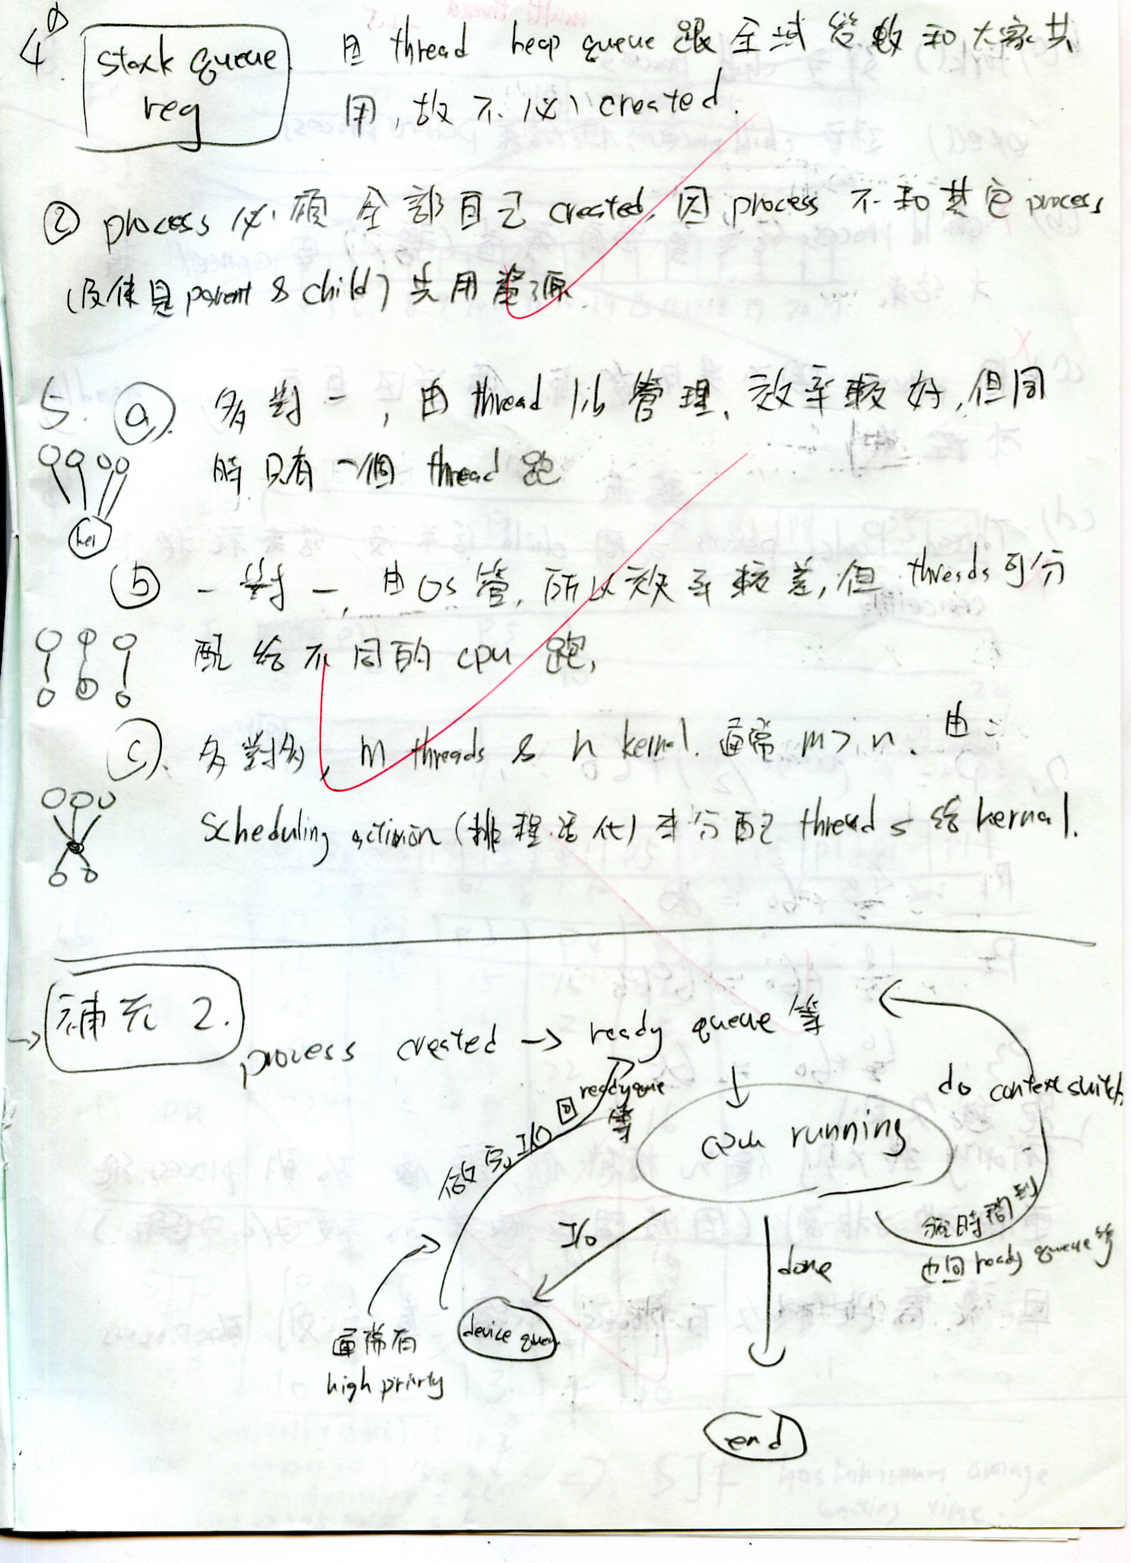 4. ①
stack queue
reg
因 thread heap queue 跟全域變數和大家共
用,故不必 created.
② process 必須全部自己 created, 因 process 不和其它 process
(及使是 parent & child) 共用資源
5. ⓐ 多對一, 由 thread lib 管理, 效率較好, 但同
時只有一個 thread 跑
ker
ⓑ 一對一, 由 OS 管, 所以效率較差, 但 threads 可分
配給不同的 cpu 跑,
ⓒ 多對多, m threads & n kernel. 通常 m > n. 由
scheduling (排程) 來分配 threads 給 kernel.
補充 2.
process created → ready queue 等
do context switch
做完 I/O 回 ready que 等
cpu running
I/O
done
時間到
也回 ready queue 等
通常有
high priority
device que
end